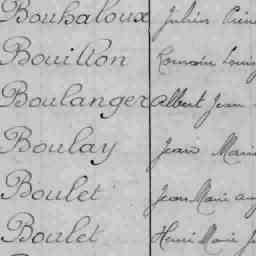 Bouhaloux Julien
Bouillon Romain Louis
Boulanger Albert Jean
Boulay Jean Marie
Boulet Jean Marie
Boulet Henri Marie